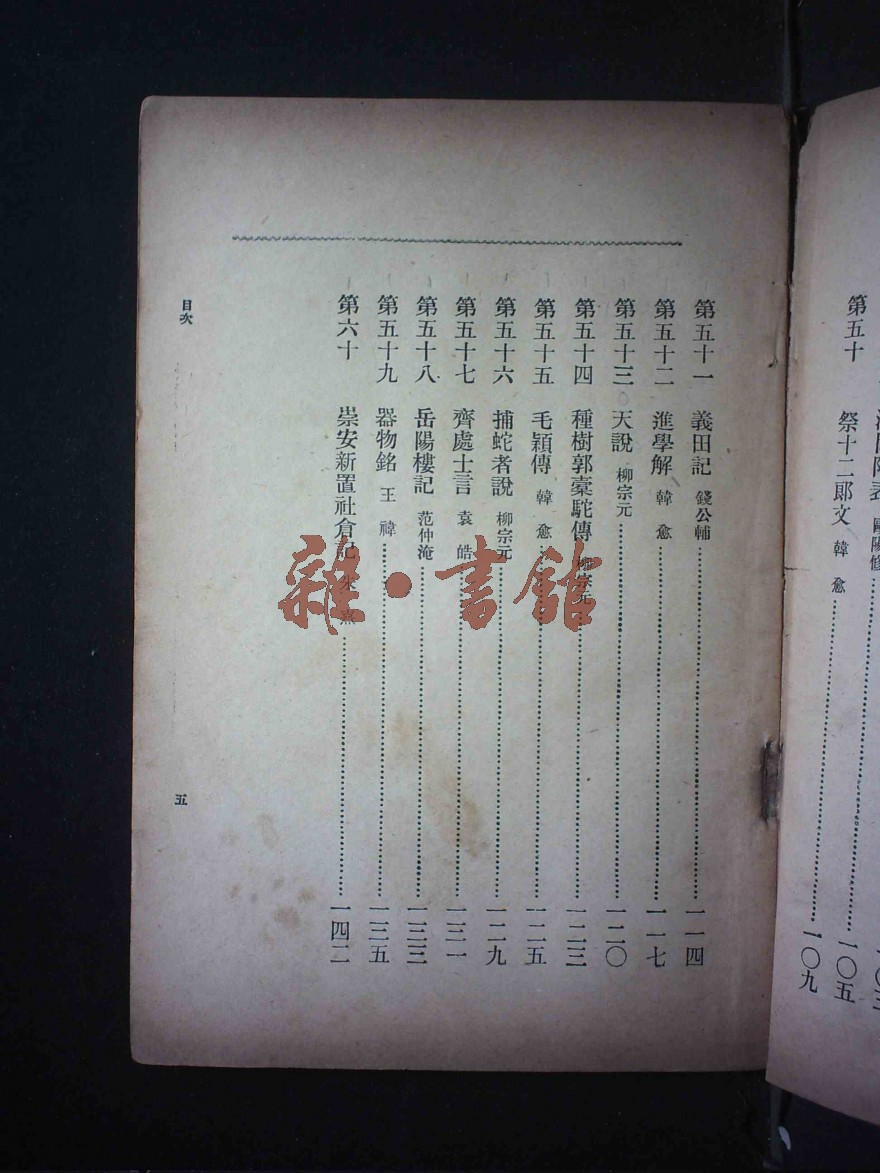 第五十 祭十二郎文 韓愈 一〇五
一〇九
第五十一 義田記 錢公輔 一一四
第五十二 進學解 韓愈 一一七
第五十三 天說 柳宗元 一二〇
第五十四 種樹郭橐駝傳 柳宗元 一二三
第五十五 毛穎傳 韓愈 一二五
第五十六 捕蛇者說 柳宗元 一二九
第五十七 齊處士言 袁皓 一三一
第五十八 岳陽樓記 范仲淹 一三三
第五十九 器物銘 王禕 一三五
第六十 崇安新置社倉記 朱熹 一四二
目次
五
雜·書館